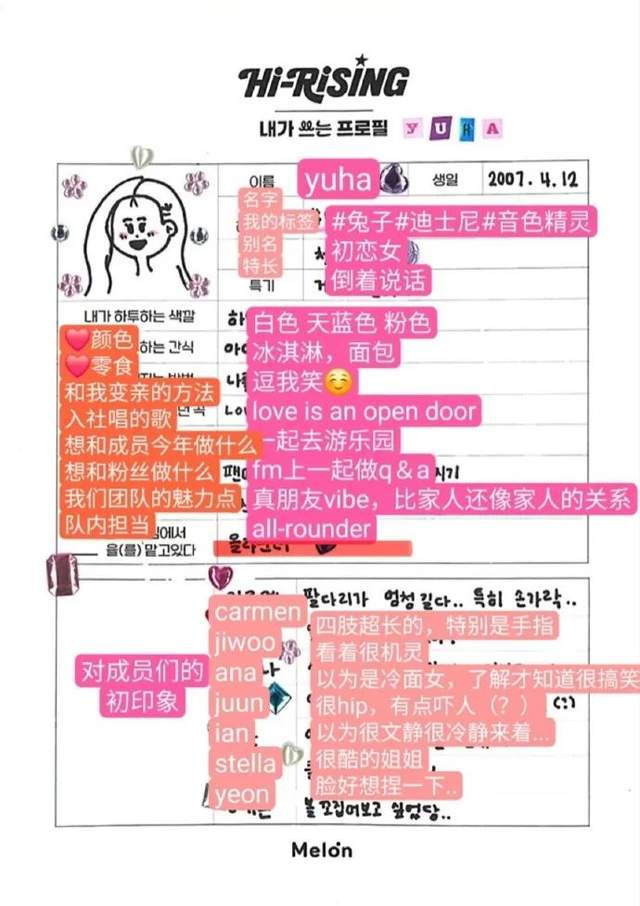 Hi-RiSiNG
내가 쓰는 프로필 YUHA
이름 yuha 생일 2007. 4. 12
名字
我的标签 #兔子#迪士尼#音色精灵
别名 初恋女
特长 倒着说话
특기
내가 하투하는 색깔
❤️颜色 白色 天蓝色 粉色
하는 간식
❤️零食 冰淇淋，面包
和我变亲的方法 逗我笑☺️
入社唱的歌 love is an open door
想和成员今年做什么 一起去游乐园
想和粉丝做什么 fm上一起做q＆a
我们团队的魅力点 真朋友vibe，比家人还像家人的关系
队内担当 all-rounder
에서
을(를) 맡고있다 올라운더
팔다리가 엄청 길다.. 특히 손가락..
对成员们的
初印象
carmen 四肢超长的，特别是手指
jiwoo 看着很机灵
ana 以为是冷面女，了解才知道很搞笑
juun 很hip，有点吓人（？）
ian 以为很文静很冷静来着...
stella 很酷的姐姐
yeon 脸好想捏一下..
볼 꼬집어보고 싶었당..
Melon